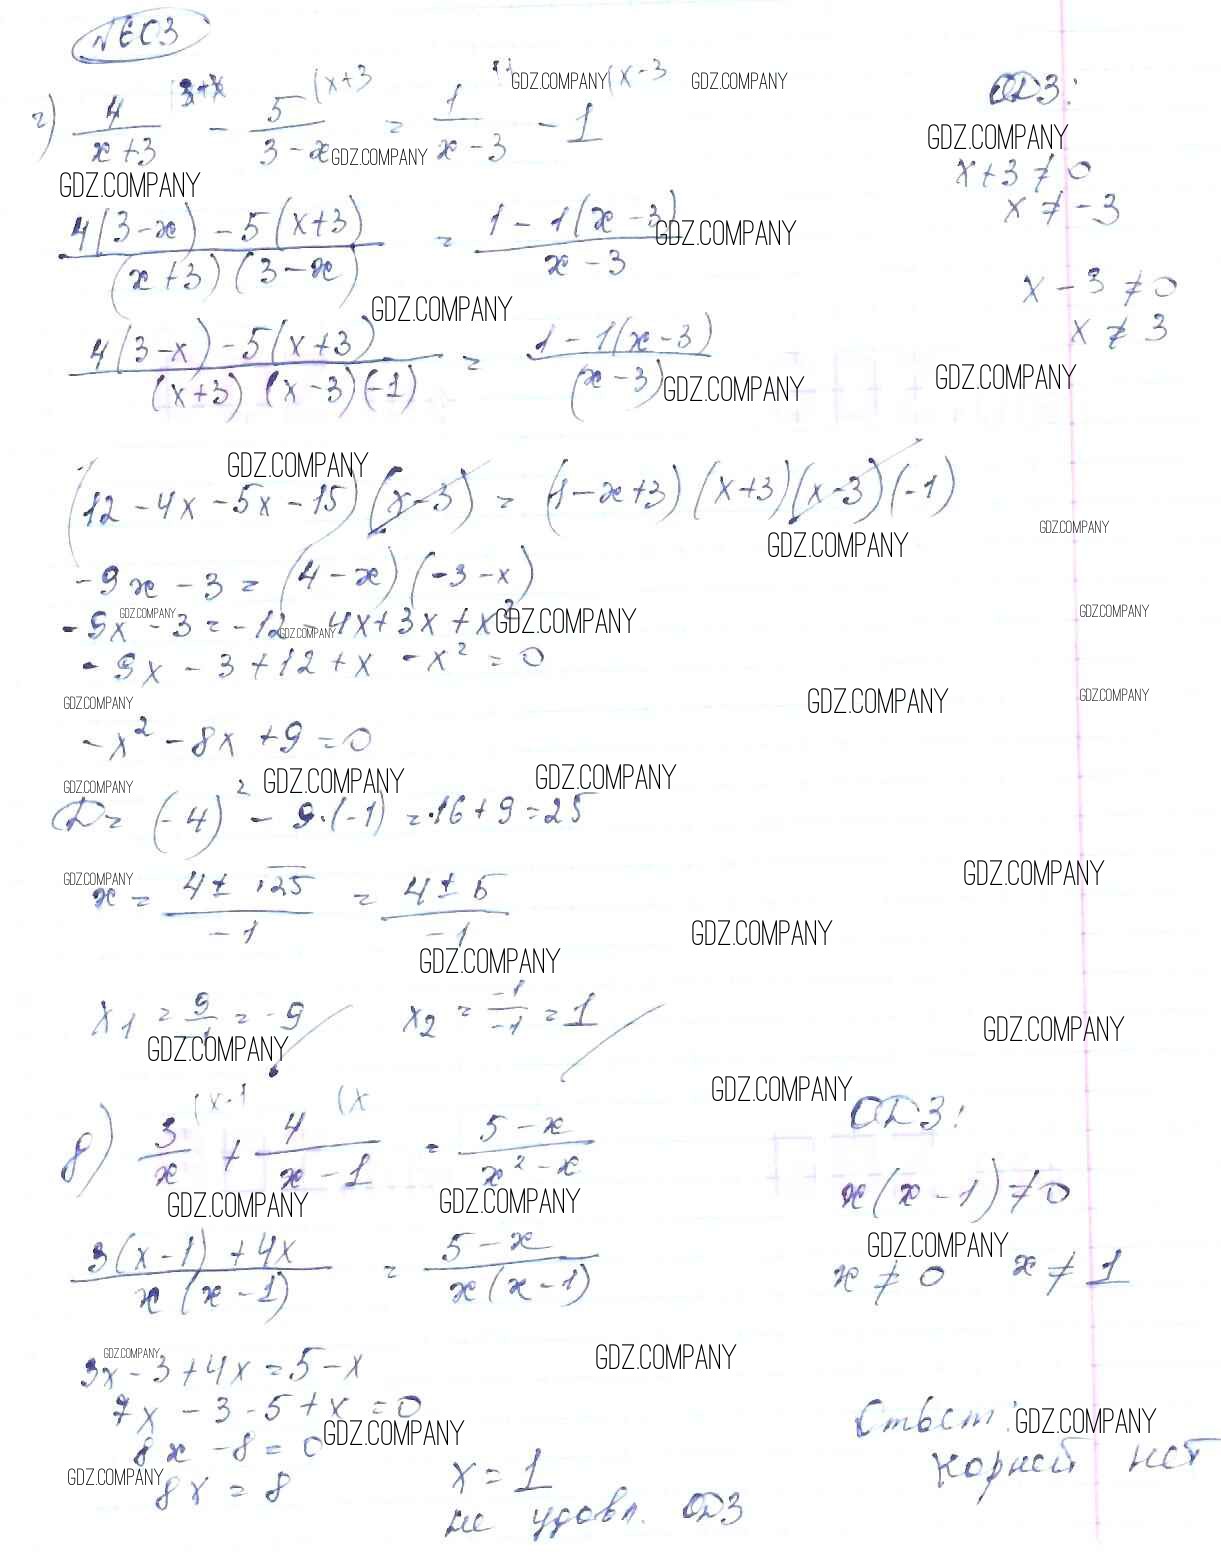 №603
(3+x (x+3 (x-3
GDZ.COMPANY GDZ.COMPANY
г) 4/(x+3) - 5/(3-x) = 1/(x-3) - 1
ОДЗ:
GDZ.COMPANY GDZ.COMPANY
GDZ.COMPANY
x+3≠0
x≠-3
(4(3-x) - 5(x+3))/((x+3)(3-x)) = (1 - 1(x-3))/(x-3)
GDZ.COMPANY
x-3≠0
x≠3
GDZ.COMPANY
(4(3-x) - 5(x+3))/((x+3)(x-3)(-1)) = (1 - 1(x-3))/(x-3)
GDZ.COMPANY GDZ.COMPANY
GDZ.COMPANY
(12 - 4x - 5x - 15)(x-3) = (1-x+3)(x+3)(x-3)(-1)
GDZ.COMPANY GDZ.COMPANY
-9x - 3 = (4-x)(-3-x)
GDZ.COMPANY GDZ.COMPANY GDZ.COMPANY
-9x - 3 = -12 - 4x + 3x + x²
GDZ.COMPANY
-9x - 3 + 12 + x - x² = 0
GDZ.COMPANY GDZ.COMPANY GDZ.COMPANY
-x² - 8x + 9 = 0
GDZ.COMPANY GDZ.COMPANY GDZ.COMPANY
D = (-4)² - 9·(-1) = 16 + 9 = 25
GDZ.COMPANY GDZ.COMPANY
x = (4 ± √25)/(-1) = (4 ± 5)/(-1)
GDZ.COMPANY
GDZ.COMPANY
x1 = 9/(-1) = -9 x2 = (-1)/(-1) = 1
GDZ.COMPANY GDZ.COMPANY
GDZ.COMPANY
(x-1 (x
д) 3/x + 4/(x-1) = (5-x)/(x²-x)
ОДЗ:
GDZ.COMPANY GDZ.COMPANY
x(x-1)≠0
GDZ.COMPANY
x≠0 x≠1
(3(x-1) + 4x)/(x(x-1)) = (5-x)/(x(x-1))
GDZ.COMPANY GDZ.COMPANY
3x - 3 + 4x = 5 - x
7x - 3 - 5 + x = 0
GDZ.COMPANY
8x - 8 = 0
GDZ.COMPANY
8x = 8
x = 1
не удовл. ОДЗ
Ответ: GDZ.COMPANY
корней нет